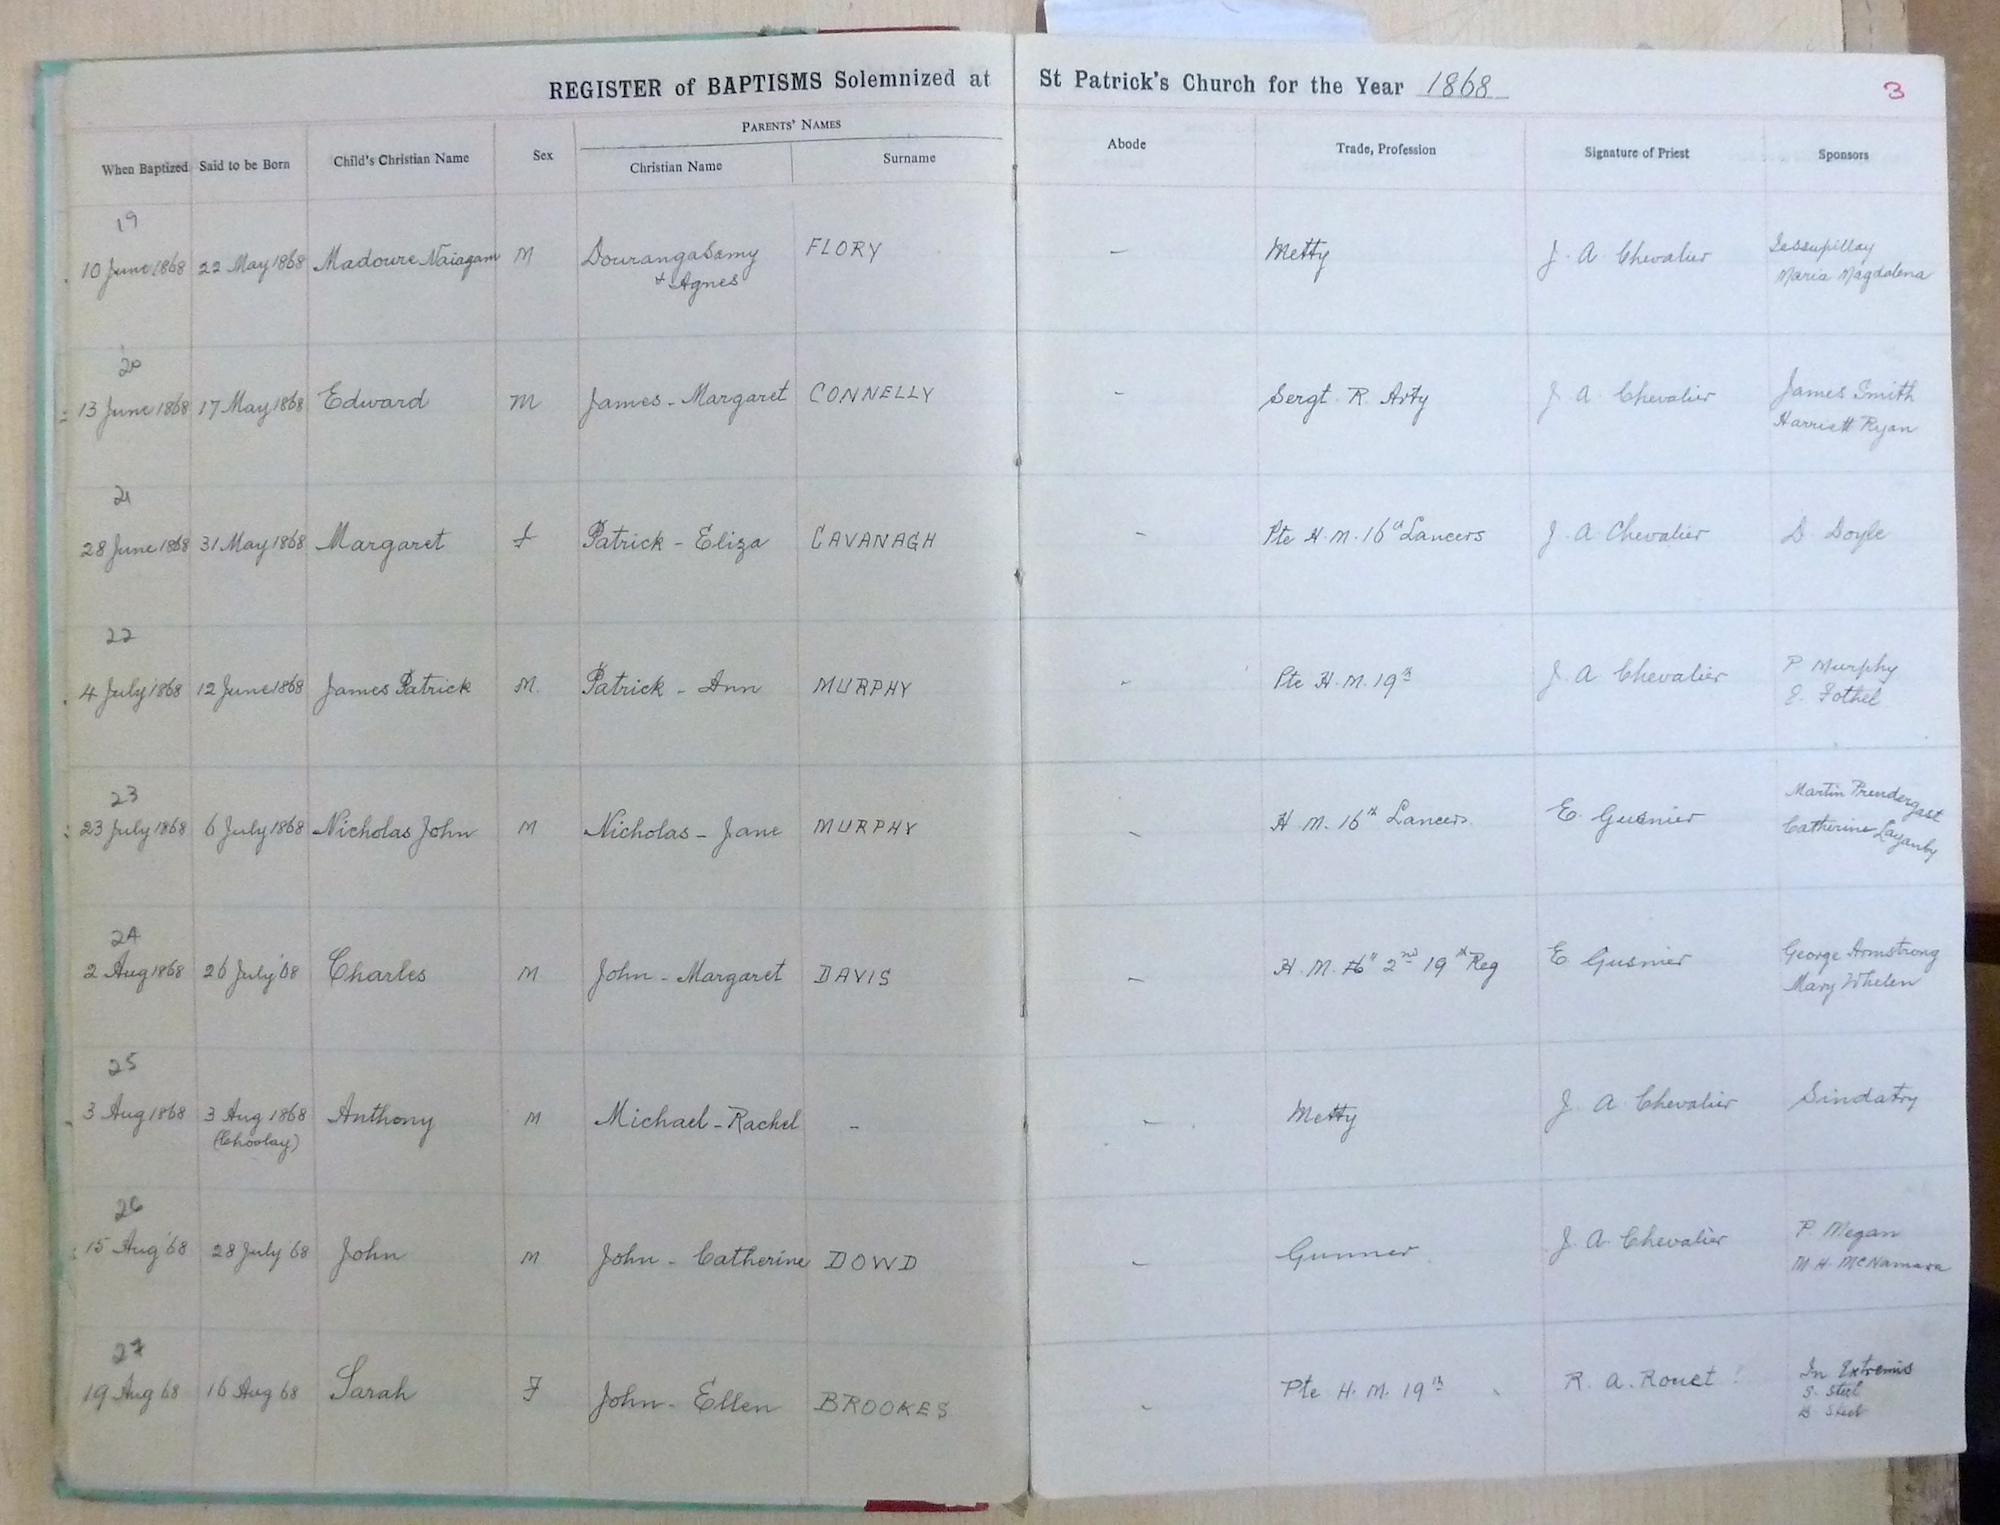 REGISTER of BAPTISMS Solemnized at St Patrick's Church for the Year 1868
3
PARENTS' NAMES
When Baptized Said to be Born Child's Christian Name Sex Christian Name Surname Abode Trade, Profession Signature of Priest Sponsors
19
10 June 1868 22 May 1868 Madoure Naiagam M Dourangasamy FLORY – Metty J. A. Chevalier
& Agnes Maria Magdalena
20
13 June 1868 17 May 1868 Edward M James - Margaret CONNELLY – Sergt. R. Arty J. A. Chevalier James Smith
Harriett Ryan
21
28 June 1868 31 May 1868 Margaret F Patrick - Eliza CAVANAGH – Pte H. M. 16th Lancers J. A. Chevalier D. Doyle
22
4 July 1868 12 June 1868 James Patrick M. Patrick - Ann MURPHY – Pte H. M. 19th J. A Chevalier P Murphy
E. Fothel
23
23 July 1868 6 July 1868 Nicholas John M Nicholas - Jane MURPHY – H. M. 16th Lancers E. Gusnier Martin Prendergast
Catherine
24
2 Aug 1868 26 July '68 Charles M John - Margaret DAVIS – H. M. 2nd 19th Reg E Gusnier George Armstrong
Mary Whelen
25
3 Aug 1868 3 Aug 1868 Anthony M Michael - Rachel – – Metty J. A Chevalier Sindatry
(Choolay)
26
15 Aug '68 28 July '68 John M John - Catherine DOWD – Gunner J. A. Chevalier P. Megan
M. H. McNamara
27
19 Aug 68 16 Aug 68 Sarah F John - Ellen BROOKES – Pte H. M. 19th R. A. Rouet In Extremis
S. Steel
B. Steel